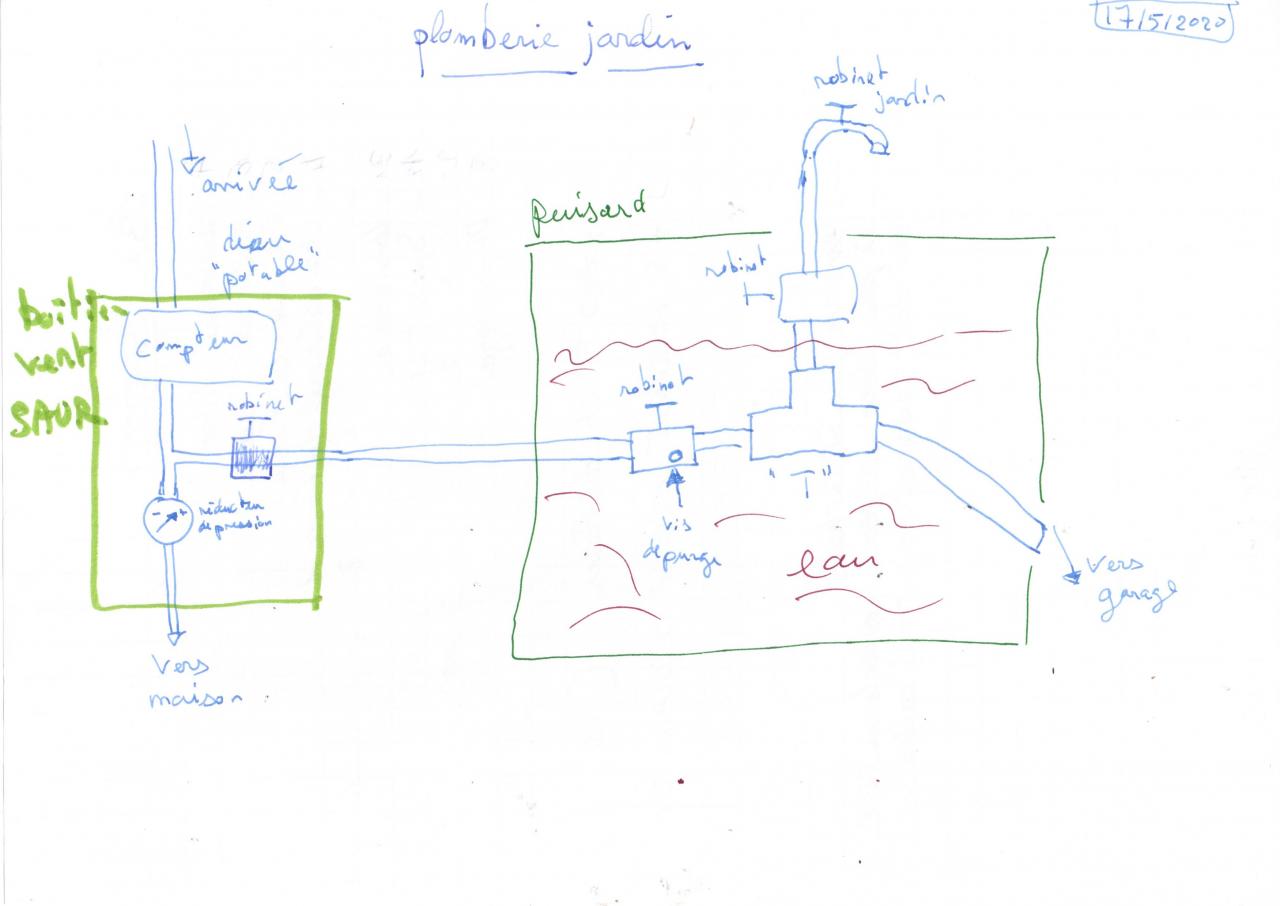 plomberie jardin
17/5/2020
robinet
jardin
arrivée
d'eau
"potable"
puisard
boîtier
vert
SAUR
compteur
robinet
réducteur
de pression
vers
maison
robinet
robinet
vis
de purge
"T"
eau
vers
garage